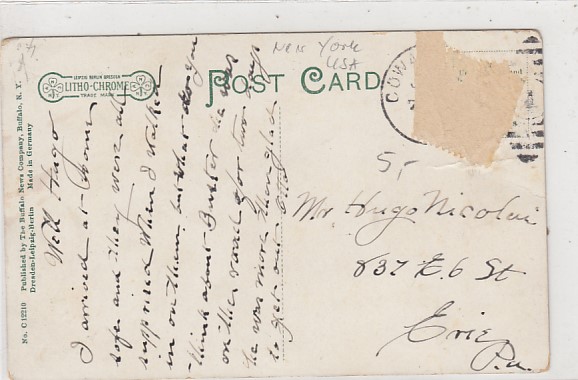 New York
USA
LEIPZIG BERLIN DRESDEN
LITHO-CHROME
TRADE MARK
POST CARD
No. C 12210 Published by The Buffalo News Company, Buffalo, N. Y.
Dresden-Leipzig-Berlin Made in Germany
Well Hugo
I arrived at home
safe and they were all
supprised when I walked
in on them but what do you
think about Buster he was
on the road for two days
he was more than glad
to get out
5,-
Mr Hugo Nicolai
837 E. 6 St
Erie
Pa.